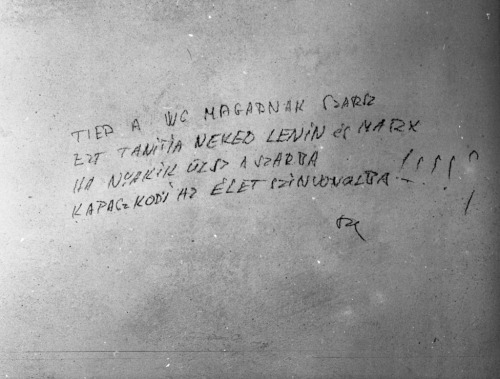 TIED A WC MAGADNAK SZARSZ
EZT TANÍTJA NEKED LENIN és MARX
HA NYAKIK ÜLSZ A SZARBA
KAPASZKODJ AZ ÉLETSZINVONALBA – !!!!!